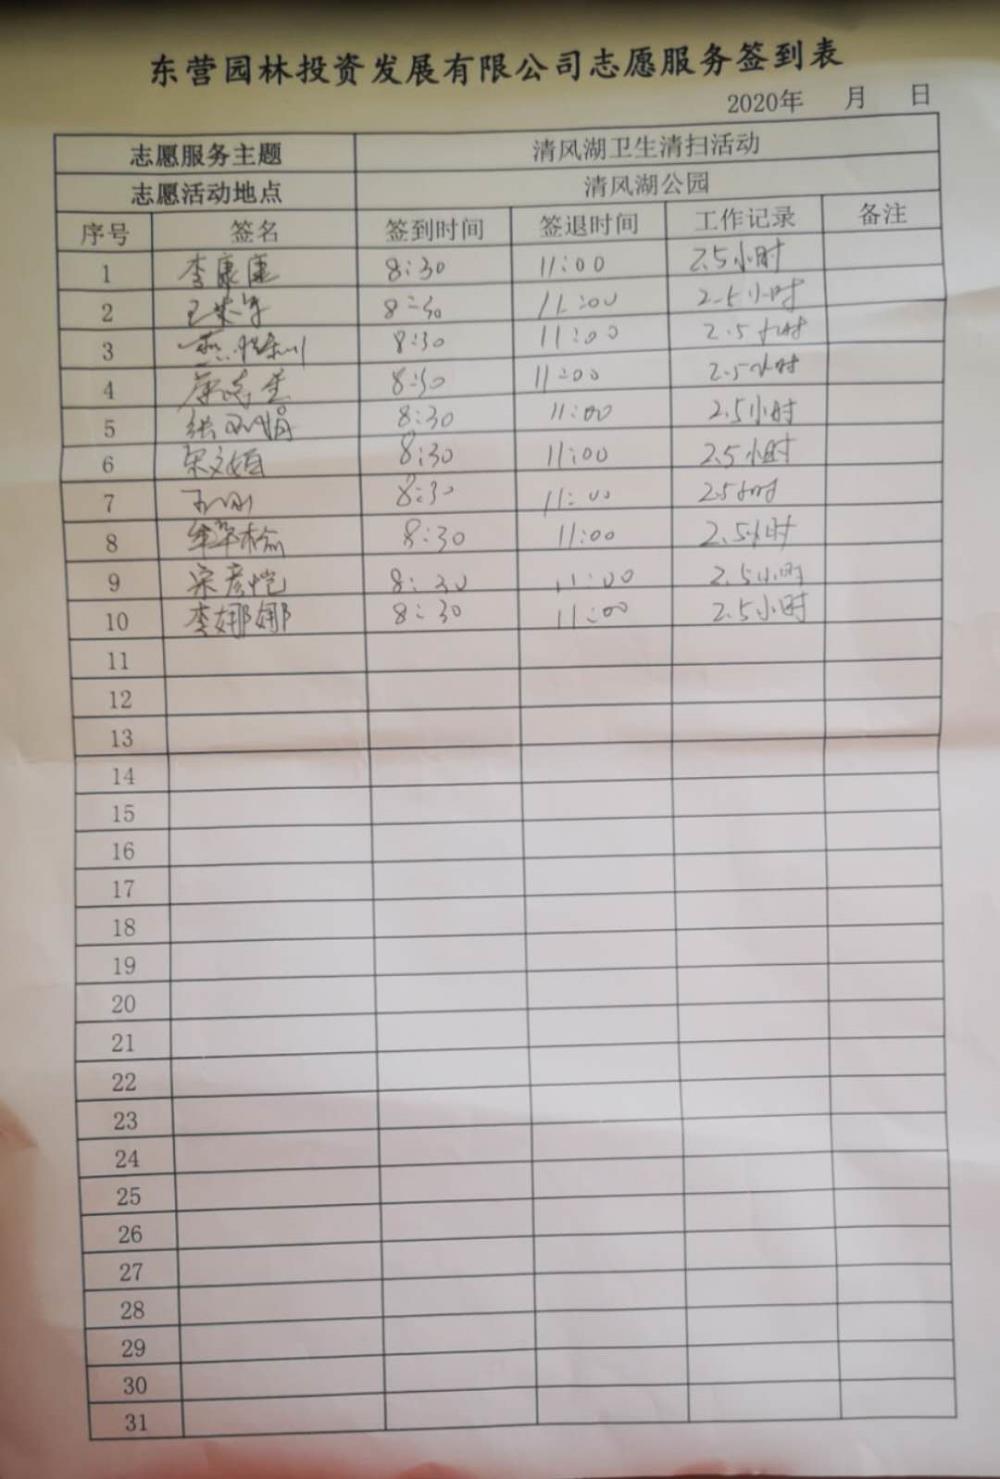 东营园林投资发展有限公司志愿服务签到表
2020年 月 日
志愿服务主题 清风湖卫生清扫活动
志愿活动地点 清风湖公园
序号 签名 签到时间 签退时间 工作记录 备注
1 李康康 8:30 11:00 2.5小时
2 8:30 11:00 2.5小时
3 8:30 11:00 2.5小时
4 8:30 11:00 2.5小时
5 张 娟 8:30 11:00 2.5小时
6 宋文 8:30 11:00 2.5小时
7 8:30 11:00 2.5小时
8 8:30 11:00 2.5小时
9 宋彦恺 8:30 11:00 2.5小时
10 李娜娜 8:30 11:00 2.5小时
11
12
13
14
15
16
17
18
19
20
21
22
23
24
25
26
27
28
29
30
31